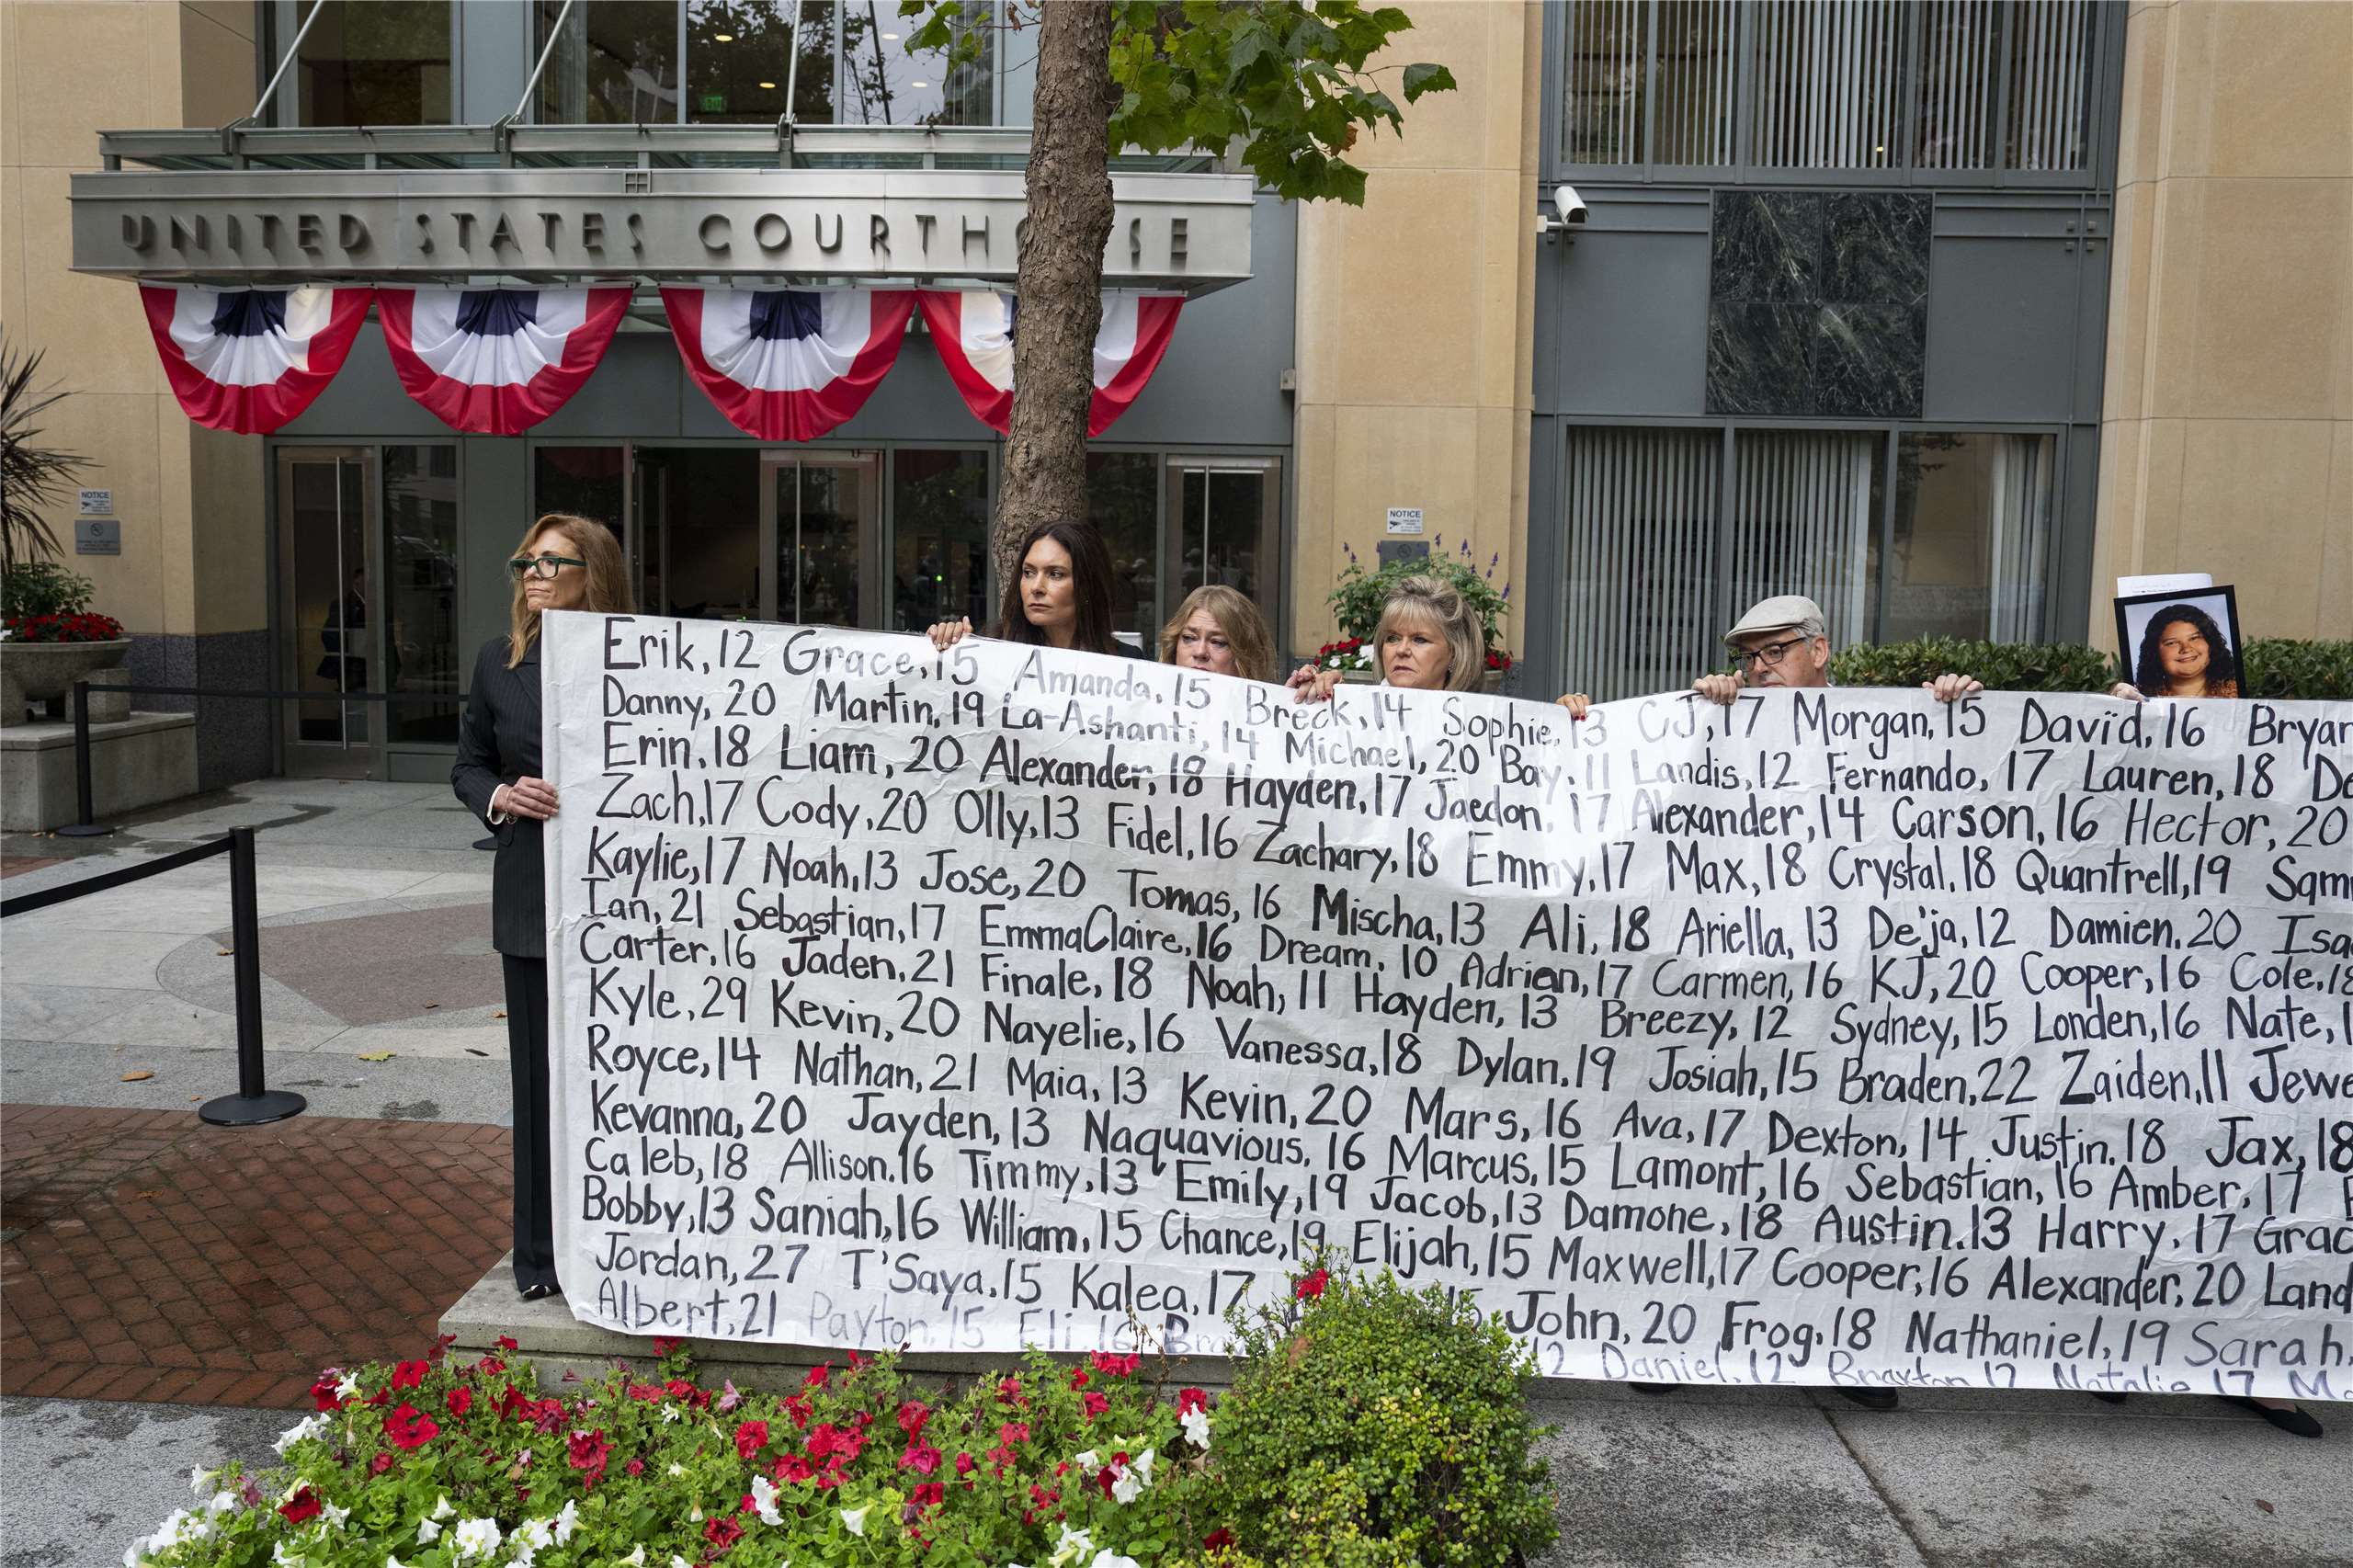 UNITED STATES COURTHOUSE
NOTICE
NOTICE
Erik, 12 Grace, 15 Amanda, 15 Breck, 14 Sophie, 13 CJ, 17 Morgan, 15 David, 16 Bryan
Danny, 20 Martin, 19 La-Ashanti, 14 Michael, 20 Bay, 11 Landis, 12 Fernando, 17 Lauren, 18 De
Erin, 18 Liam, 20 Alexander, 18 Hayden, 17 Jaedon, 17 Alexander, 14 Carson, 16 Hector, 20
Zach, 17 Cody, 20 Olly, 13 Fidel, 16 Zachary, 18 Emmy, 17 Max, 18 Crystal, 18 Quantrell, 19 Sam
Kaylie, 17 Noah, 13 Jose, 20 Tomas, 16 Mischa, 13 Ali, 18 Ariella, 13 De'ja, 12 Damien, 20 Isa
Ian, 21 Sebastian, 17 EmmaClaire, 16 Dream, 10 Adrian, 17 Carmen, 16 KJ, 20 Cooper, 16 Cole, 18
Carter, 16 Jaden, 21 Finale, 18 Noah, 11 Hayden, 13 Breezy, 12 Sydney, 15 Londen, 16 Nate, 1
Kyle, 29 Kevin, 20 Nayelie, 16 Vanessa, 18 Dylan, 19 Josiah, 15 Braden, 22 Zaiden, 11 Jewe
Royce, 14 Nathan, 21 Maia, 13 Kevin, 20 Mars, 16 Ava, 17 Dexton, 14 Justin, 18 Jax, 18
Kevanna, 20 Jayden, 13 Naquavious, 16 Marcus, 15 Lamont, 16 Sebastian, 16 Amber, 17
Caleb, 18 Allison, 16 Timmy, 13 Emily, 19 Jacob, 13 Damone, 18 Austin, 13 Harry, 17 Grac
Bobby, 13 Saniah, 16 William, 15 Chance, 19 Elijah, 15 Maxwell, 17 Cooper, 16 Alexander, 20 Land
Jordan, 27 T'Saya, 15 Kalea, 17 John, 20 Frog, 18 Nathaniel, 19 Sarah,
Albert, 21 Payton, 15 Eli, 16 Bra 12 Daniel, 12 Braxton, 17 Natalie, 17